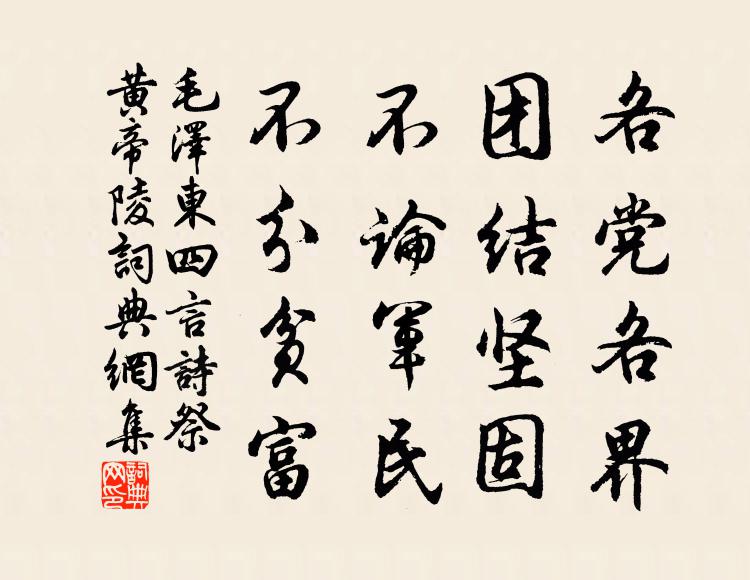 各党各界
团结坚固
不论軍民
不分贫富
毛澤東四言詩祭
黄帝陵詞典網集
詞典网印